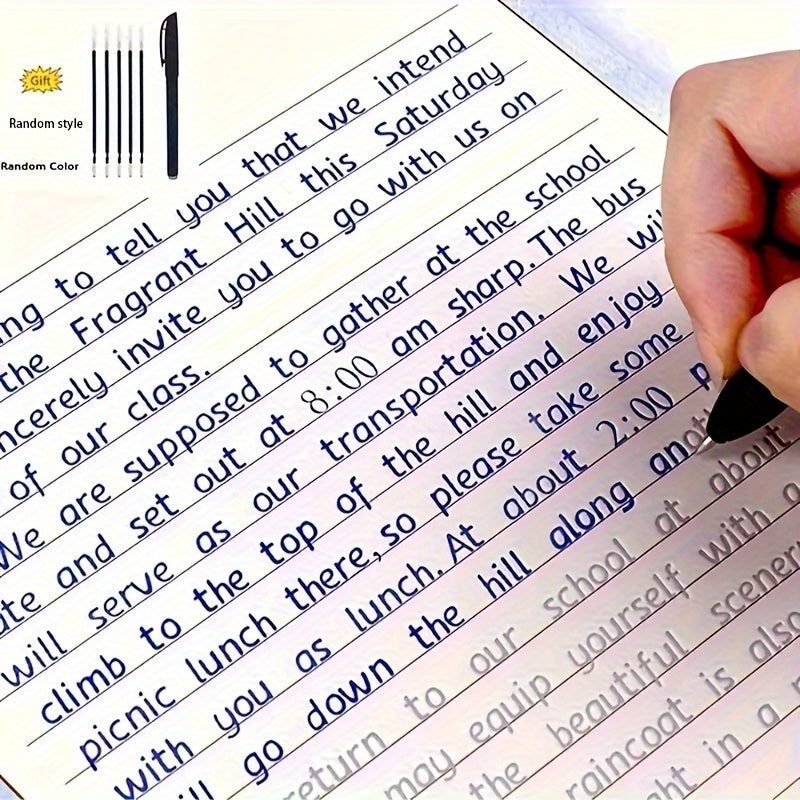 Gift
Random style
Random Color
ng to tell you that we intend
the Fragrant Hill this Saturday
ncerely invite you to go with us on
of our class.
We are supposed to gather at the school
ate and set out at 8:00 am sharp.The bus
will serve as our transportation. We wil
climb to the top of the hill and enjoy
picnic lunch there,so please take some
with you as lunch.At about 2:00 p
ill go down the hill along anoth
return to our school at about
may equip yourself with a
the beautiful scenery
raincoat is also
ght in a